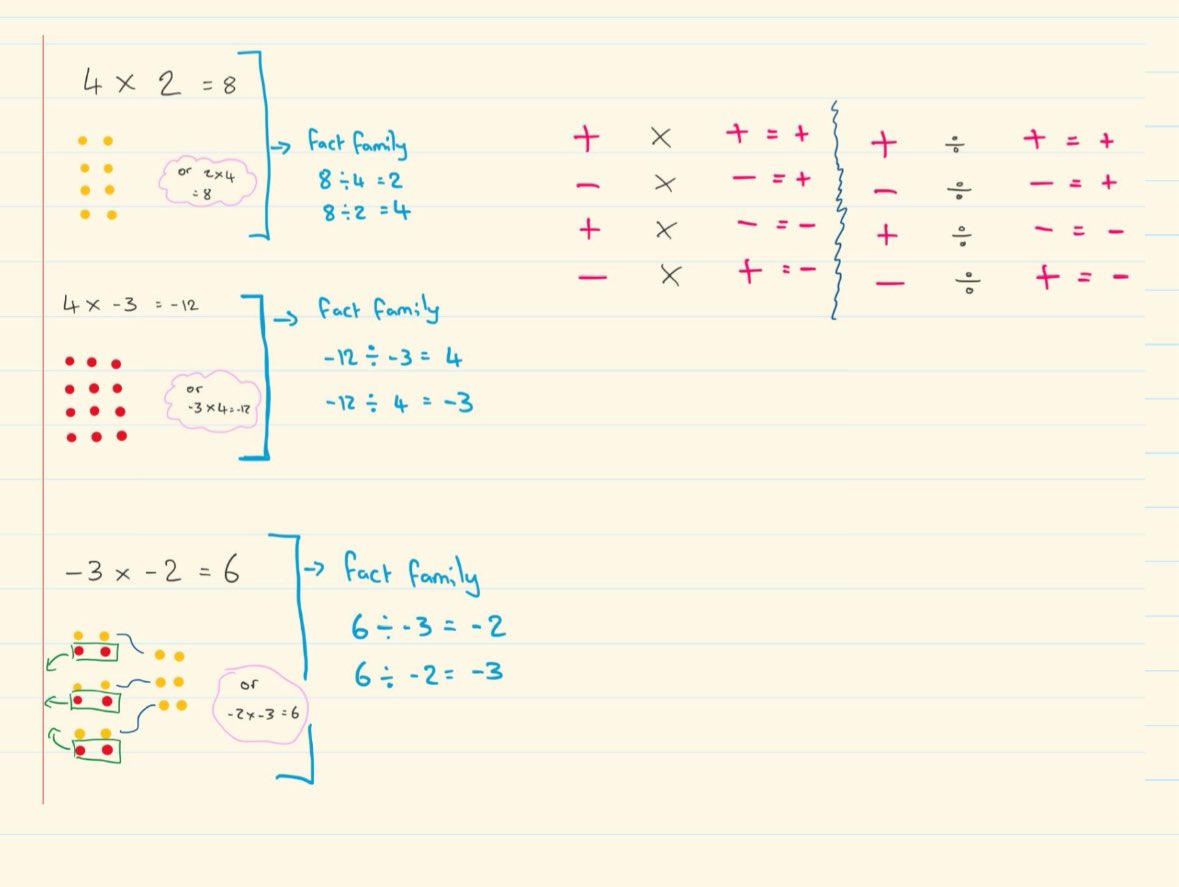 4 × 2 = 8
or 2×4
= 8
→ Fact family
8 ÷ 4 = 2
8 ÷ 2 = 4
4 × -3 = -12
or
-3 × 4 = -12
→ Fact family
-12 ÷ -3 = 4
-12 ÷ 4 = -3
-3 × -2 = 6
or
-2 × -3 = 6
→ Fact family
6 ÷ -3 = -2
6 ÷ -2 = -3
+ × + = +
- × - = +
+ × - = -
- × + = -
+ ÷ + = +
- ÷ - = +
+ ÷ - = -
- ÷ + = -